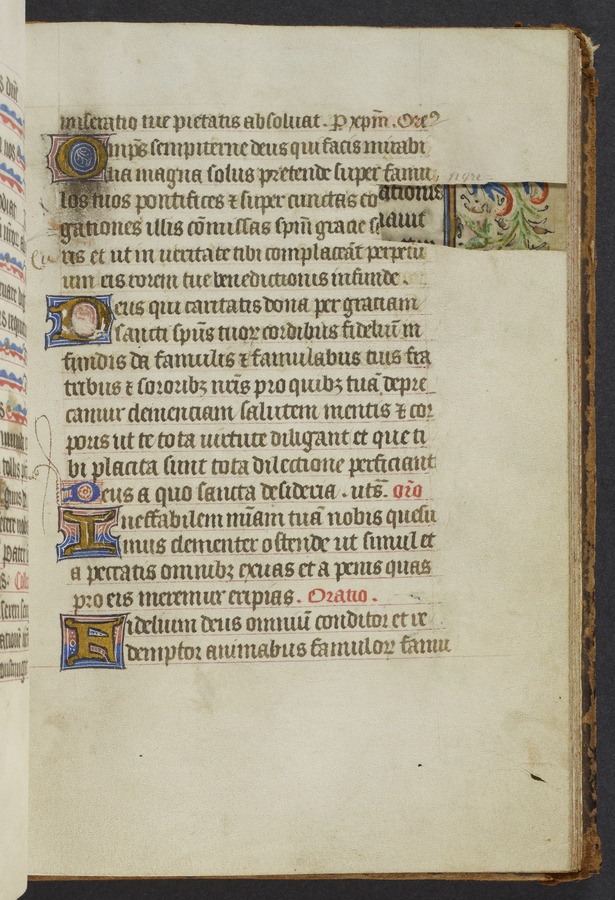 miseratio tue pietatis absoluat. P xpm̄. Ore⁹
Omps̄ sempiterne deus qui facis mirabi
lia magna solus pretende super famu
los tuos pontifices ⁊ super cunctas co
gationes illis cōmissas spm̄ gracie s
ris et ut in ueritate tibi complaceāt perpetu
um eis rorem tue benedictionis infunde.
Deus qui caritatis dona per gratiam
sancti sps̄ tuoꝝ cordibus fideliū in
fundis da famulis ⁊ famulabus tuis fra
tribus ⁊ sororibꝫ nr̄is pro quibꝫ tuā depre
camur clemenciam salutem mentis ⁊ cor
poris ut te tota uirtute diligant et que ti
bi placita sunt tota dilectione perficiant
Deus a quo sancta desideria. uts̄. oro
Ineffabilem mīam tuā nobis quesu
mus clementer ostende ut simul et
a peccatis omnibꝫ exuas et a penis quas
pro eis meremur eripias. Oratio.
Fidelium deus omniū conditor et re
demptor animabus famuloꝝ famu
ationis